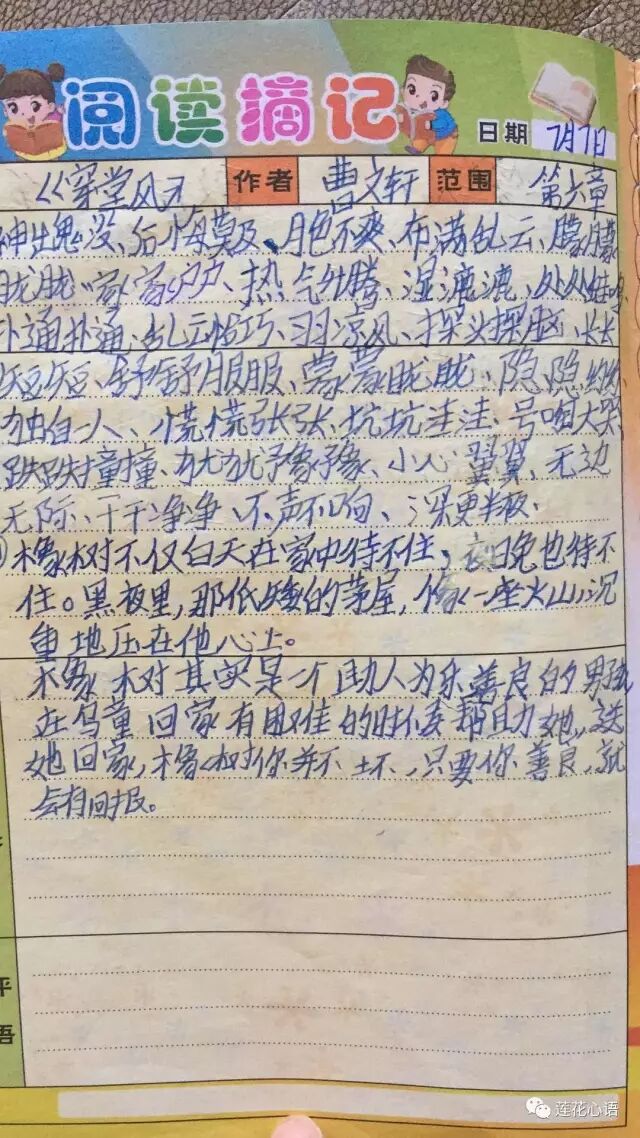 阅读摘记
日期 7月7日
《穿堂风》 作者 曹文轩 范围 第六章
神出鬼没、后悔莫及、月色不爽、布满乱云、朦朦
胧胧、家家户户、热气升腾、湿漉漉、处处蛙鸣
扑通扑通、乱云恰巧、习习凉风、探头探脑、长长
短短、舒舒服服、蒙蒙眬眬、隐隐约约
独自一人、慌慌张张、坑坑洼洼、号啕大哭
跌跌撞撞、犹犹豫豫、小心翼翼、无边
无际、干干净净、不声不响、深更半夜.
橡树不仅白天在家中待不住,夜晚也待不
住。黑夜里,那低矮的茅屋,像一座火山,沉
重地压在他心上。
橡树其实是一个助人为乐善良的男孩
在乌童回家有困难的时候帮助她,送
她回家,橡树你并不坏,只要你善良,就
会有回报。
平
语
莲花心语